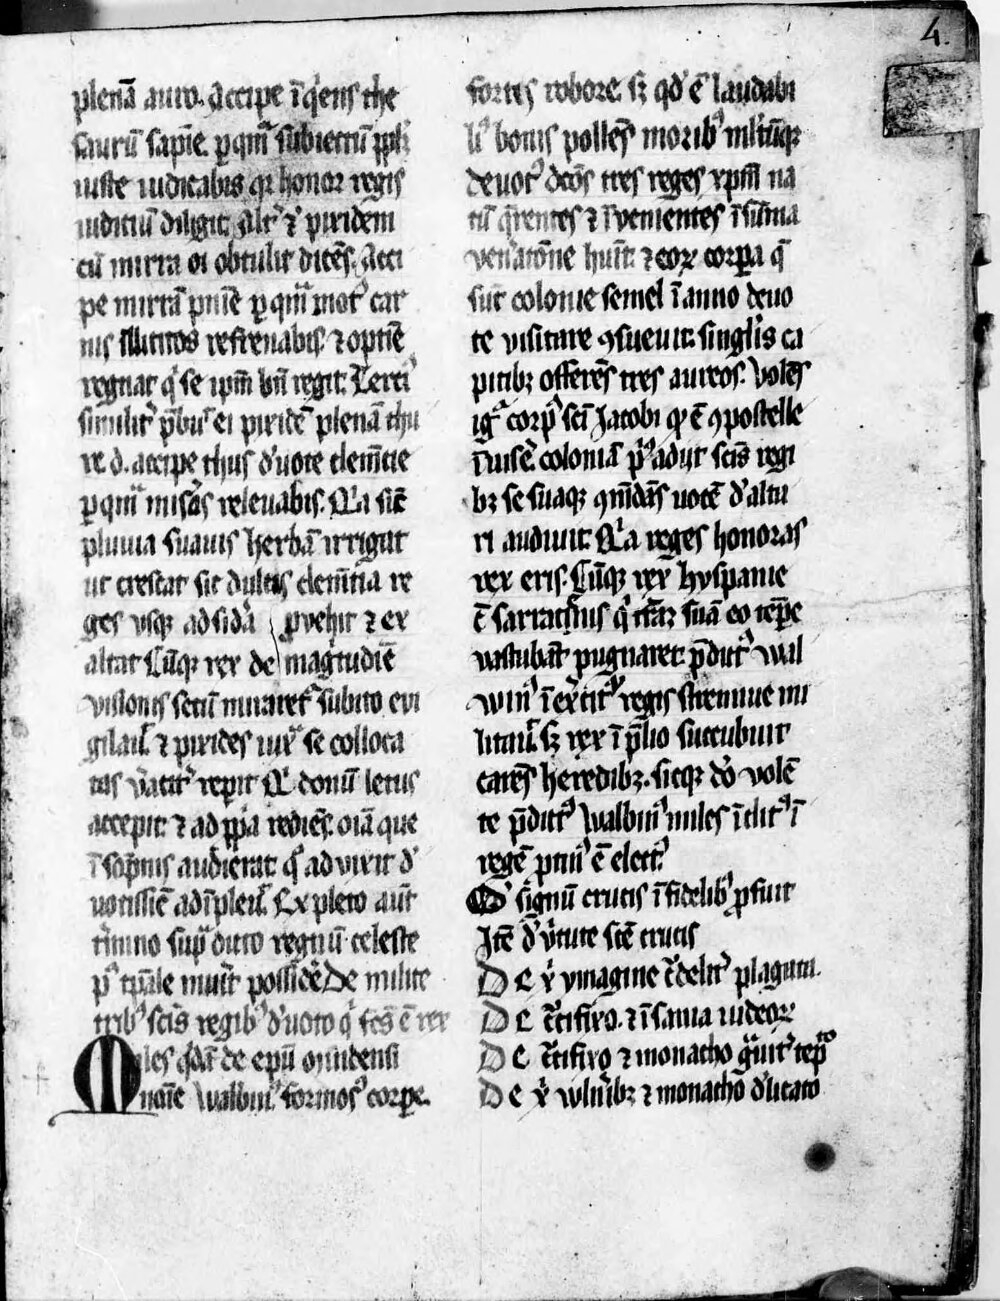 4.
plenā auro. Accipe īqͥens the
saurū sapīe. ꝑ quā subiectū ppl̄m
iuste iudicabis qꝛ honor regis
iudiciū diligit. Alt̓ ꝟ̓ pixidem
cū mirra ei obtulit dicēs. Acci
pe mirrā pnīe ꝑ quā mot᷒ car
nis illicitos refrenabis. ⁊ optīe
regnat qͥ se ip̄m bn̄ regit. Terci᷒
similit̓ p̄bu᷒ ei pixidē plenā thu
re d. accipe thus d̓uote clem̄tie
ꝑ quā mis̓os releuabis. Nͣ sic̄
pluuia suauis herbā irrigat
ut crescat sic dulcis clem̄tia re
ges usqꝫ ad sid̓a ꝓuehit ⁊ ex
altat Cūqꝫ rex de magͥtudīe
visionis secū miraret᷒ subito evi
gilau̓ ⁊ pixides iux̓ se colloca
tas v̓acit̓ reperit Qͥ donū letus
accepit ⁊ ad ꝓpͥa rediēs. oīa que
ī sōpnis audierat qͣ ad vixit d̓
uotissīe adīpleu̓. Expleto aūt
t̓mino sup̓ duco regnū celeste
pͦ tp̄ale mu᷒it possid̓e De milite
tribꝫ scīs regibꝫ d̓uoto qͥ fcs̄ ē rex
Miles qͥdā de epū mīdensi
noīe Walbin᷒ formos᷒ corpe.
fortis robore. sꝫ qd̓ ē laudabi
li᷒ bonis pollēs moribꝫ ml̓tūqꝫ
deuot᷒ dc̄os tres reges xp̄m na
tū q̄rentes ⁊ īvenientes ī sūma
ven̓atōne huit. ⁊ eoꝝ corꝑa q̄
sūt colonie semel ī anno deuo
te visitare ꝯsueuit. singlis̓ ca
pitibꝫ offerēs tres aureos. Volēs
igͭ corp᷒ scī Jacobi qd̓ ē ꝯpostelle
īuise᷒ coloniā pͥ᷒ adijt scīs regi
bꝫ se suaqꝫ ꝯm̄dās uocē d̓altu
ri audiuit. Qͥa reges honoras
rex eris. Cūqꝫ rex hyspanie
ꝯ̄ sarracenus qͥ t̄raꝫ suā eo tēpe
vastabāt pugnaret. p̄dict᷒ wal
win᷒ ī ex̓citu regis strennue mi
litauit. sꝫ rex ī p̄lio succubuit
carēs heredibꝫ. sicqꝫ dō volē
te p̄dict᷒ Walbin᷒ miles īclit᷒ ī
regē ꝓtin᷒ ē elect᷒
Qd̓ signū crucis īfidelibꝫ ꝓfuit
Itē d̓ v̓tute scē crucis
De xͥ ymagine c̓delit̓ plagata.
De c̓cifixo. ⁊ īsania iudeoꝝ
De c̓cifixo ⁊ monacho gͣuit̓ tēpᵗo
De xͥ wln̓ibꝫ ⁊ monacho d̓licato